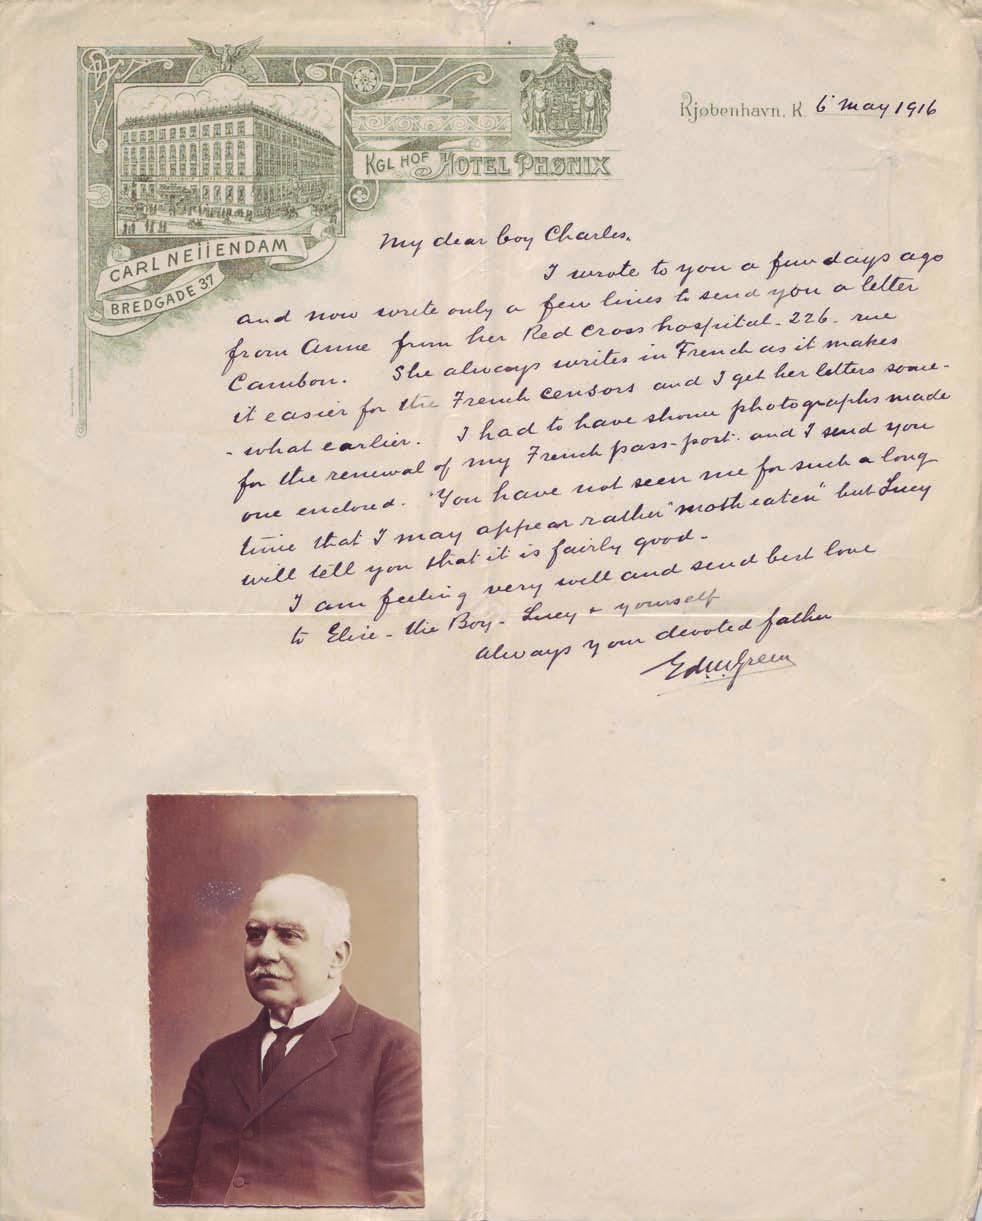 Kjøbenhavn. K. 6 May 1916
KGL HOF HOTEL PHØNIX
CARL NEIIENDAM
BREDGADE 37
My dear boy Charles.
I wrote to you a few days ago
and now write only a few lines to send you a letter
from Anne from her Red Cross hospital - 226 - rue
Cambon. She always writes in French as it makes
it easier for the French censors and I get her letters some-
- what earlier. I had to have some photographs made
for the renewal of my French pass-port. and I send you
one enclosed. You have not seen me for such a long
time that I may appear rather "moth eaten" but Lucy
will tell you that it is fairly good -
I am feeling very well and send best love
to Elise - the Boy - Lucy + yourself
always your devoted father
Green